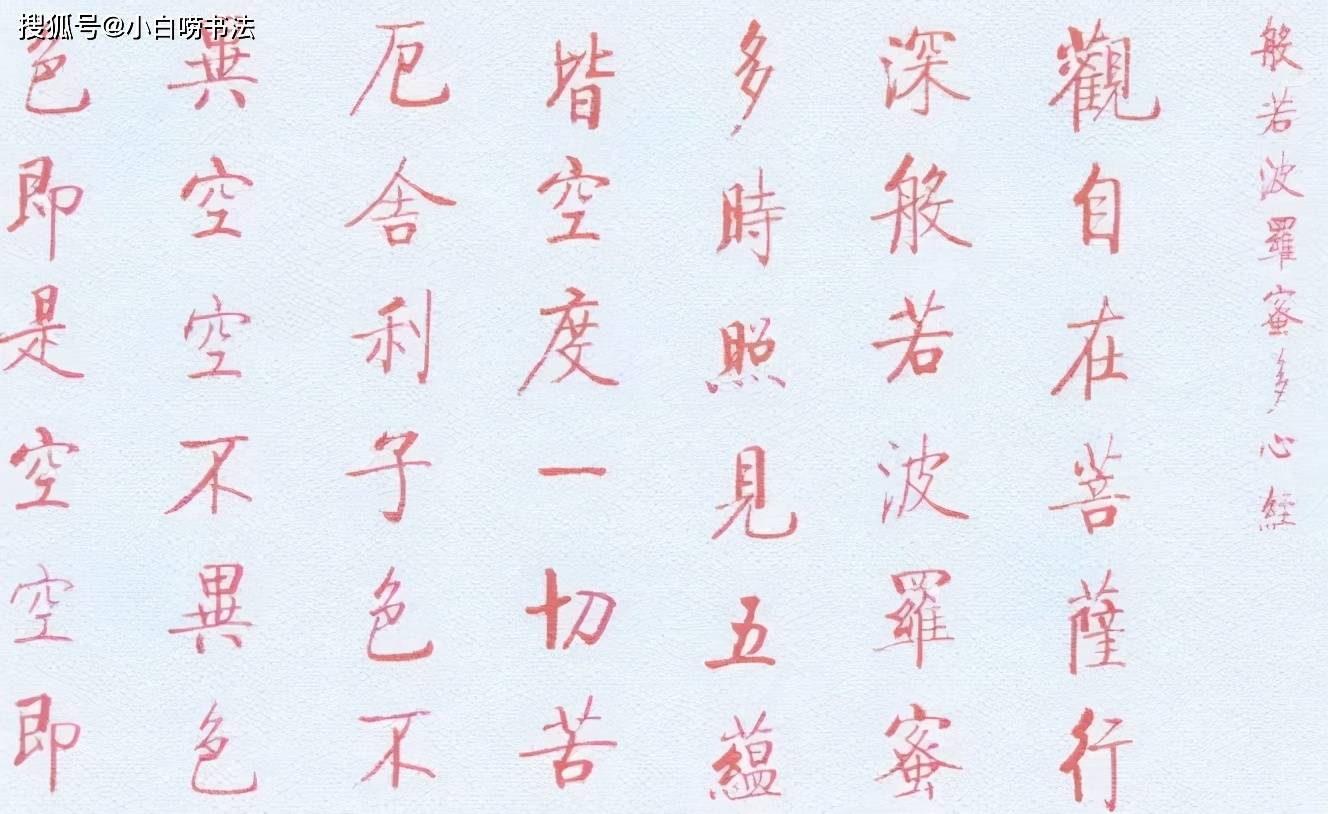 搜狐号@小白唠书法
般若波羅蜜多心經
觀自在菩薩行
深般若波羅蜜
多時照見五蘊
皆空度一切苦
厄舍利子色不
異空空不異色
色即是空空即